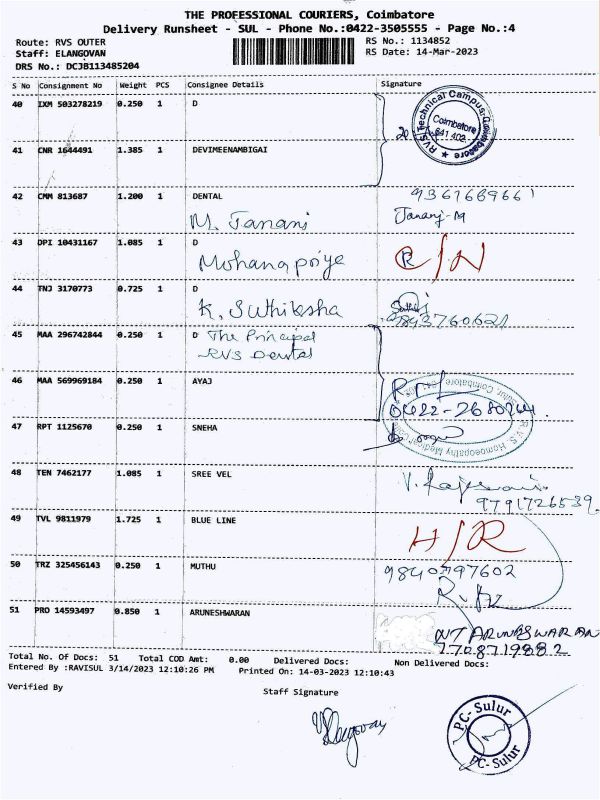 THE PROFESSIONAL COURIERS, Coimbatore
Delivery Runsheet - SUL - Phone No.:0422-3505555 - Page No.:4
Route: RVS OUTER
RS No.: 1134852
Staff: ELANGOVAN
RS Date: 14-Mar-2023
DRS No.: DCJB113485204
S No Consignment No Weight PCS Consignee Details Signature
40 IXM 503278219 0.250 1 D
RVS Technical Campus-Coimbatore
Coimbatore
641 402
41 CNR 1644491 1.385 1 DEVIMEENAMBIGAI
42 CMM 813687 1.200 1 DENTAL
M. Janani
9361669661
Janani-M
43 DPI 10431167 1.085 1 D
Mohanapriya
C/N
44 TNJ 3170773 0.725 1 D
K. Suthiksha
9843760621
45 MAA 296742844 0.250 1 D The Principal
RVS Dental
46 MAA 569969184 0.250 1 AYAJ
0422-2680
R.V.S. Homoeopathy Medical
Sulur, Coimbatore
47 RPT 1125670 0.250 1 SNEHA
48 TEN 7462177 1.085 1 SREE VEL
9791726539
49 TVL 9811979 1.725 1 BLUE LINE
H/R
50 TRZ 325456143 0.250 1 MUTHU
9840797602
51 PRO 14593497 0.850 1 ARUNESHWARAN
NT ARUNESWARAN
7708719882
Total No. Of Docs: 51 Total COD Amt: 0.00 Delivered Docs: Non Delivered Docs:
Entered By :RAVISUL 3/14/2023 12:10:26 PM Printed On: 14-03-2023 12:10:43
Verified By
Staff Signature
PC- Sulur
PC- Sulur